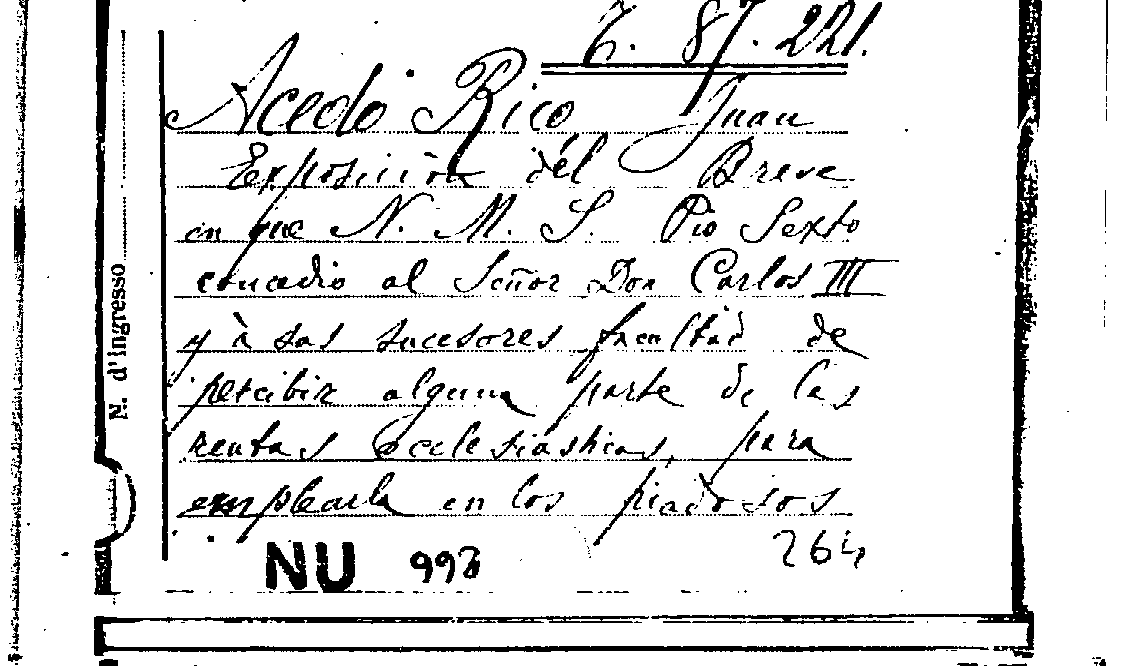 7. 87. 221.
Acedo Rico Juan
Exposición del Breve
en que N. M. S. Pio Sexto
concedio al Señor Don Carlos III
y à sus sucesores facultad de
percibir alguna parte de las
rentas eclesiasticas, para
emplearla en los piadosos
NU 993 264
N. d'ingresso